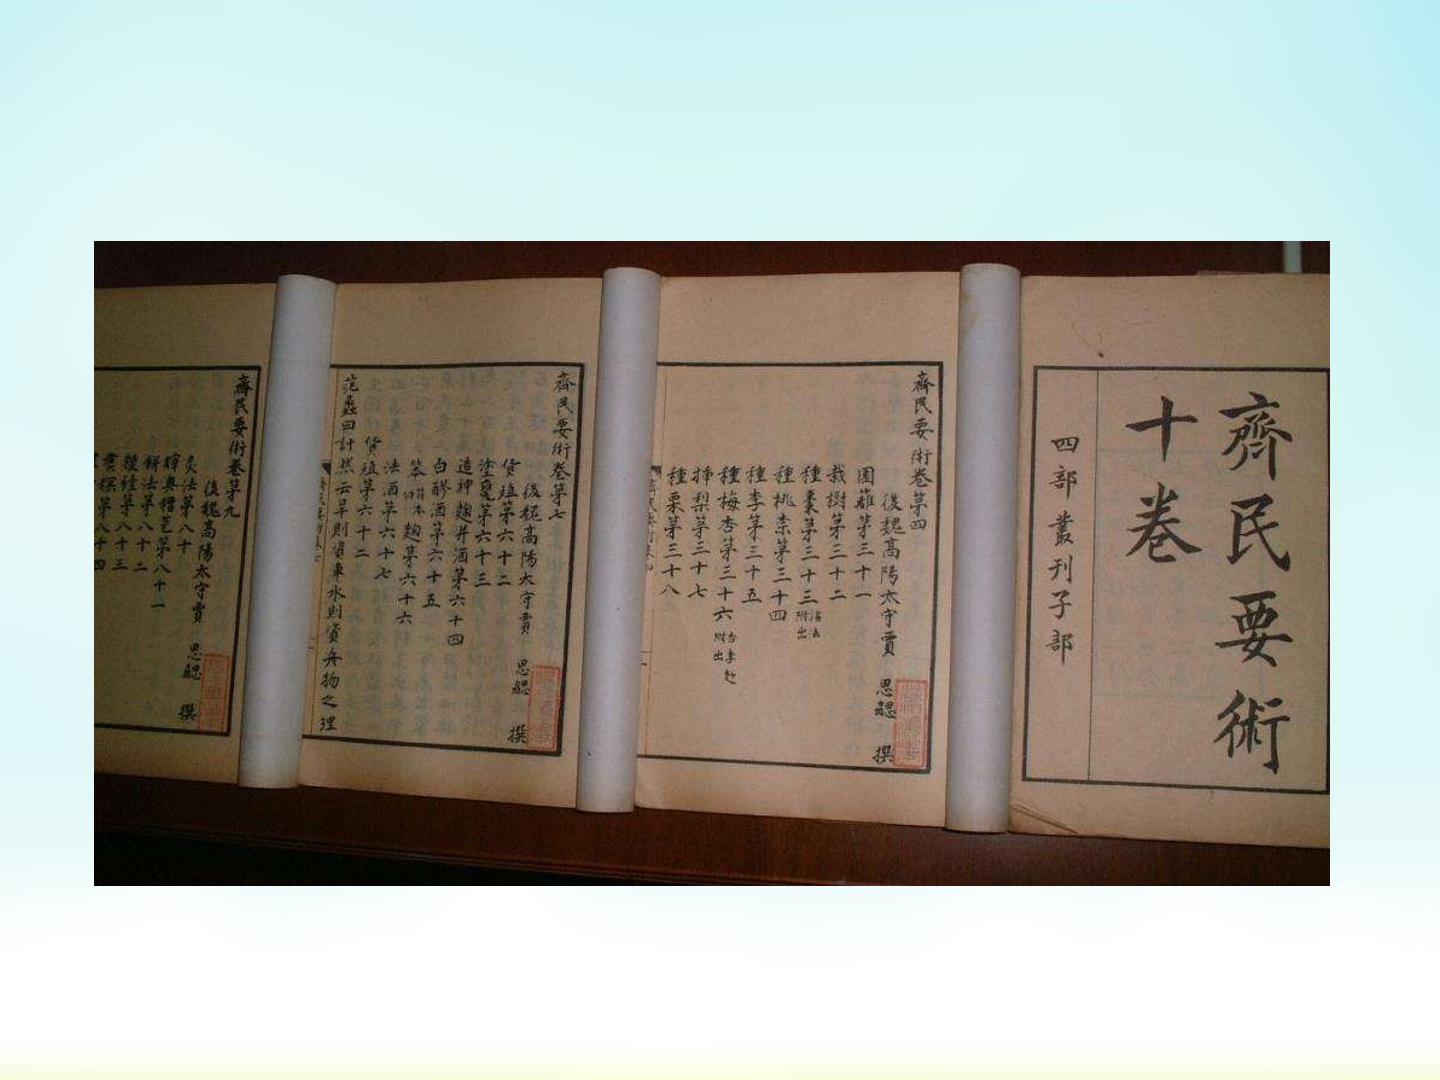 齊民要術
十卷
四部叢刊子部
齊民要術卷第四
後魏高陽太守賈思勰撰
園籬第三十一
栽樹第三十二
種棗第三十三 諸法附出
種桃柰第三十四
種李第三十五
種梅杏第三十六 杏李𪍑附出
插梨第三十七
種栗第三十八
齊民要術卷第七
後魏高陽太守賈思勰撰
貨殖第六十二
塗甕第六十三
造神麴并酒第六十四
白醪酒第六十五
笨麴第六十六
法酒第六十七
貨殖第六十二
范蠡曰計然云旱則資車水則資舟物之理
齊民要術卷第九
後魏高陽太守賈思勰撰
炙法第八十
第八十一
餅法第八十二
第八十三
第八十四